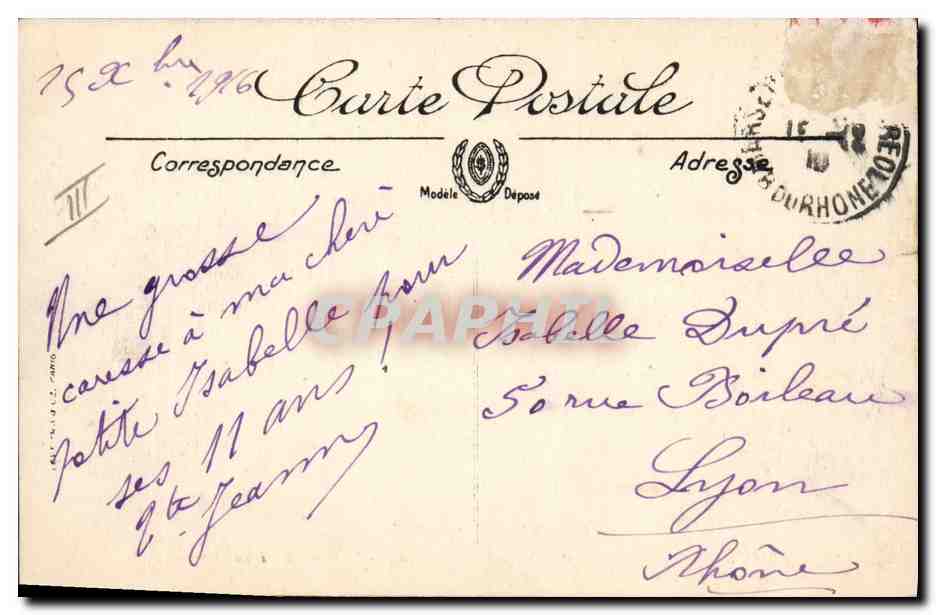 15 Xbre 1916
Carte Postale
Correspondance
Adresse
Modèle Déposé
III
DU RHONE
Une grosse
caresse à ma chère
petite Isabelle pour
ses 11 ans !
Jeanne
Mademoiselle
Isabelle Dupré
50 rue Boileau
Lyon
Rhône
CPAPHIL